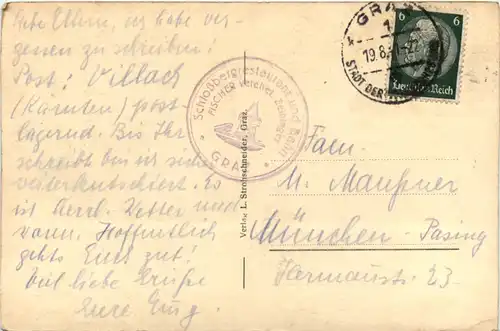 Liebe Eltern, wir habe ver-
gessen zu schreiben!
Post: Villach
(Kärnten) post
lagernd. Bis Ihr
schreibt bin ich
weiterkutschiert. Es
ist herrl. Wetter und
warm. Hoffentlich
gehts Euch gut!
Viel liebe Grüße
Eure
Schloßbergrestaurant und Bahn
FISCHER
GRAZ
Verlag L. Strohschneider, Graz.
GRAZ
1
19.8.
STADT DER
6 6
Deutsches Reich
Fam.
M.
München - Pasing
Hermannstr. 23